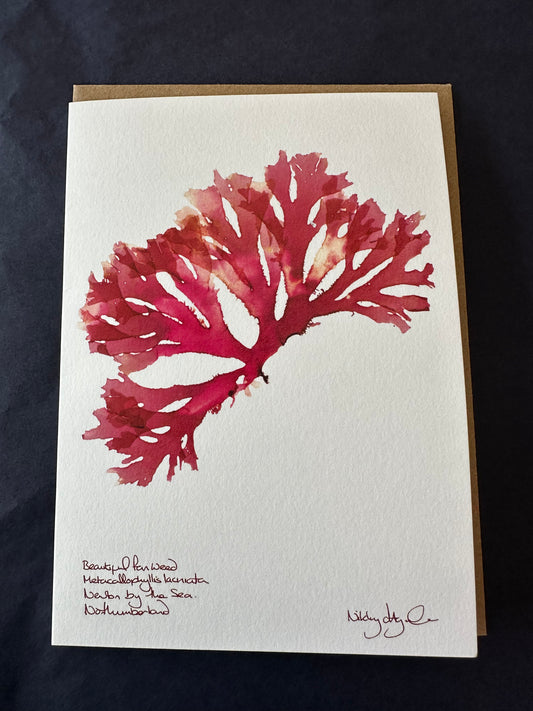 Beautiful Fan Weed
Metacallophyllis laciniata
Newton by the Sea.
Northumberland